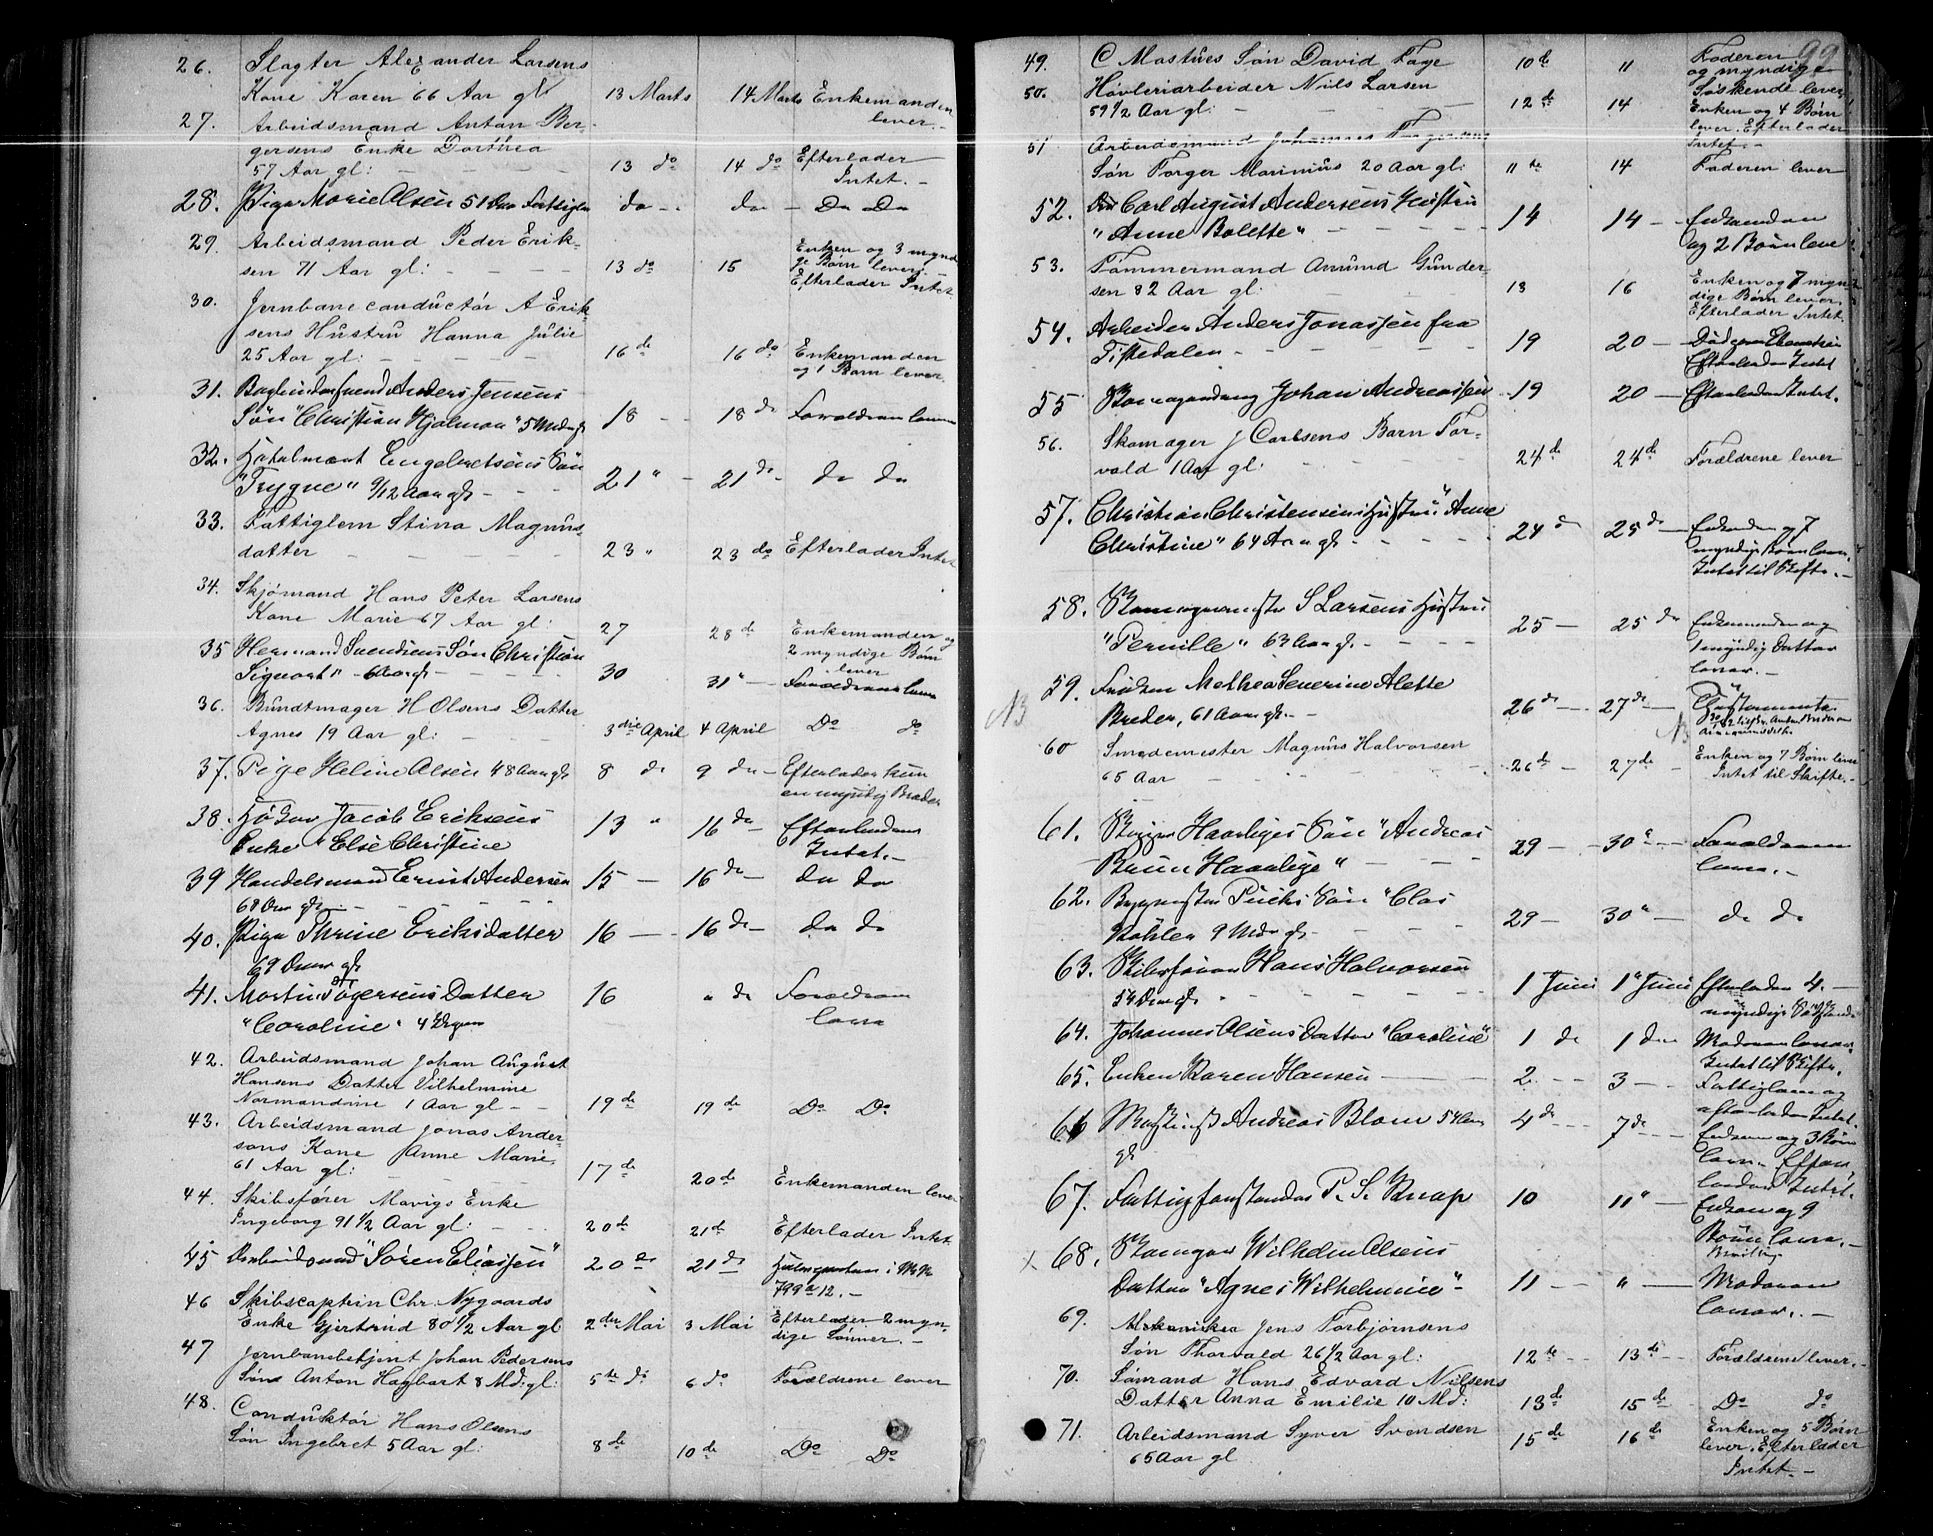 26. Slagter Alexander Larsens
Kone Karen 66 Aar gl 13 Marts 14 Marts Enkemanden
lever.
27. Arbeidsmand Anton Ber-
gersens Enke Dorthea
57 Aar gl: 13 do 14 do Efterlader
Intet.
28. Pige Marie Olsen 51 Aar Fattiglem do do Do Do
29. Arbeidsmand Peder Erik-
sen 71 Aar gl: 13 do 15 Enken og 3 mynd
ge Børn lever.
Efterlader Intet.
30. Jernbaneconductør A Erik-
sens Hustru Hanna Julie
25 Aar gl: 16 de 16 do Enkemanden
og 1 Barn lever.
31. Bogbindersvend Anders Jensens
Søn "Christian Hjalmar" 5 Mdr gl 18 18 de Forældrene lever
32. Engelbretsens Søn
"Trygve" 9/12 Aar gl 21 " 21 de do do
33. Fattiglem Stina Magnus-
datter 23 " 23 do Efterlader Intet
34. Skjømand Hans Peter Larsens
Kone Marie 67 Aar gl: 27 28 de Enkemanden og
2 myndige Børn
lever
35 Herman Svendsens Søn Christian
Sigvart" 6 Aar gl 30 31 " Forældrene lever
36. Bundtmager H Olsens Datter
Agnes 19 Aar gl: 3die April 4 April Do do
37. Pige Helene Olsen 48 Aar gl 8 de 9 de Efterlader kun
en myndig Broder
38. Høker Jacob Eriksens
Enke "Else Christine 13 " 16 de Efterlader
Intet.
39 Handelsmand Ernst Andersen
68 Aar gl. 15 16 de do do
40. Pige Thrine Eriksdatter
69 Aar gl 16 16 de do do
41. Martin Tøgersens Datter
"Caroline" 4 Dage 16 " de Forældrene
lever
42. Arbeidsmand Johan August
Hansens Datter Vilhelmine
Normandine 1 Aar gl 19 de 19 de Do Do
43. Arbeidsmand Jonas Ander-
sens Kone Anne Marie
61 Aar gl: 17 de 20 de Enkemanden lever
44. Skibsfører Mavigs Enke
Ingeborg 91 1/2 Aar gl: 20 de 21 de Efterlader Intet
45 Arbeidsmand "Søren Eliassen" 20 de 21 de
799 12.
46 Skibscaptein Chr. Nygaards
Enke Gjertrud 80 1/2 Aar gl 2den Mai 3 Mai Efterlader 2 myn-
dige Sønner.
47 Jernbanebetjent Johan Pedersens
Søn Anton Hagbart 8 Md: gl: 5te do 6 do Forældrene lever
48. Conduktør Hans Olsens
Søn Ingebret 5 Aar gl: 8 de 10 de Do Do
99
49. C Mastues Søn David Faye 10 de 11 Faderen
og myndige
Søskende lever
50. Høvleriarbeider Niels Larsen
59 1/2 Aar gl: 12 de 14 Enken og 4 Børn
lever. Efterlader
Intet.
51 Arbeidsmand Johannes Torgersens
Søn Torger Marinius 20 Aar gl: 11 te 14 Faderen lever
52. Carl August Andersens Hustru
"Anne Bolette" 14 14 Enkemanden
og 2 Børn leve
53. Tømmermand Amund Gunder-
sen 82 Aar gl: 13 16 Enken og 7 myn-
dige Børn lever.
Efterlader Intet.
54. Arbeider Anders Jonassen fra
Tistedalen 19 20
Efterlader Intet
55 Johan Andreassen 19 20 Efterlader Intet.
56. Skomager J Carlsens Barn Tor-
vald 1 Aar gl: 24 de 24 de Forældrene lever
57. Christian Christensens Hustru "Anne
Christine" 64 Aar gl. 24 de 25 de Enkemanden og 7
myndige Børn lever.
Intet til Skifte.
58. Skomagermester S Larsens Hustru
"Pernille" 63 Aar gl. 25 25 de Enkemanden og
1 myndig Datter
lever.
NB 59. Frøken Mathea Severine Alette
Breder, 61 Aar gl. 26 de 27 de Testamente
NB
60 Smedemester Magnus Halvorsen
65 Aar 26 de 27 de Enken og 7 Børn lever
Intet til Skifte.
61. Haarbyes Søn "Andreas
Bruun Haarbye" 29 30 " Forældrene
lever.
62. Søn "Clas
Köhler 9 Mdr gl. 29 30 " do do
63. Skibsfører Hans Halvorsen
54 Aar gl. 1 Juni 1 " Juni Efterlader 4
myndige Søskende
64. Johannes Olsens Datter "Caroline" 1 de 1 de Moderen lever.
Intet til Skifte.
65. Enken Karen Hansen 2 3 Fattiglem og
efterlader Intet.
66 Andreas Blom 54 Aar
gl 4 de 7 de Enken og 3 Børn
lever. Efter-
lader Intet.
67. Fattigforstander P. S. Knap 10 11 " Enken og 9
Børn lever.
x 68. Skomager Wilhelm Olsens
Datter "Agnes Wilhelmine" 11 " Moderen
lever.
69. Mekaniker Jens Torbjørnsens
Søn Thorvald 26 1/2 Aar gl: 12 te 13 de Forældrene lever.
70. Sømand Hans Edvard Nilsens
Datter Anna Emilie 10 Md: 13 de 15 de Do do
71. Arbeidsmand Syver Svendsen
65 Aar gl 15 de 16 de Enken og 5 Børn
lever. Efterlader
Intet.